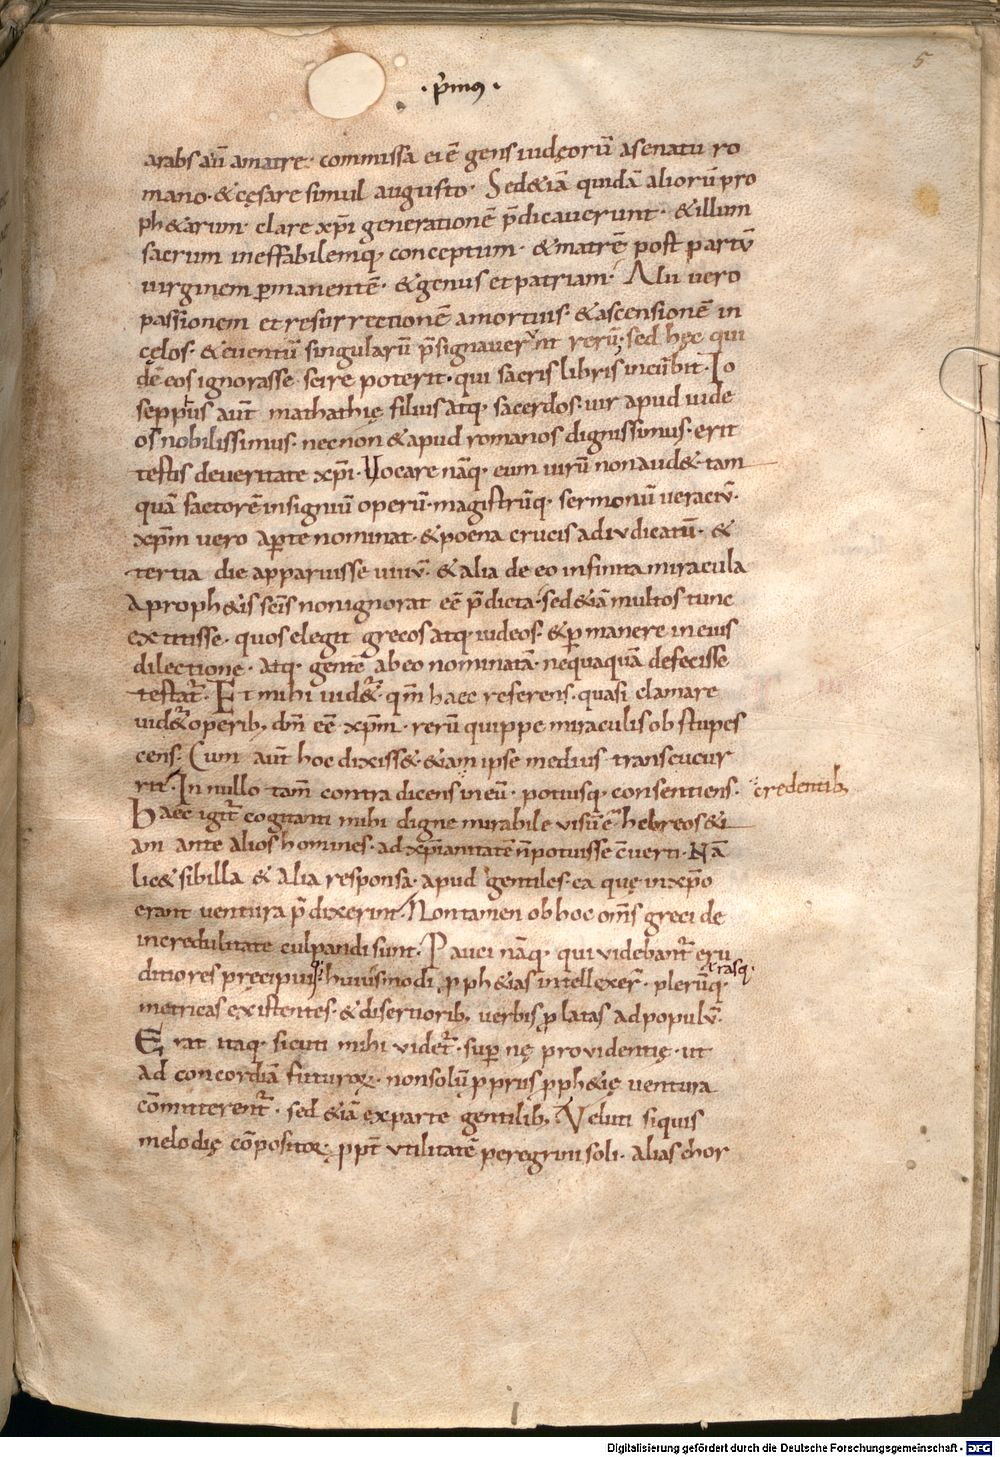 5
· p̄mꝰ ·
arabs aū amatre· commissa ei ē gens iudęorū asenatu ro
mano· & cęsare simul augusto· Sed&iā quidā aliorū pro
ph&arum· clare xp̄i generationē p̄dicauerunt· & illum
sacrum ineffabilemq; conceptum· & matrē post partū
uirginem ꝑmanentē· & genus et patriam· Alii uero
passionem et resurrectionē amortuis· & ascensionē in
cęlos· & euentū singularū p̄signauerunt rerū· sed hęc qui
dē eos ignorasse scire poterit· qui sacris libris incūbit· Io
seppus aūt mathathię filius atq; sacerdos· uir apud iude
os nobilissimus· necnon & apud romanos dignissimus· erit
testis deueritate xp̄i· Uocare nāq; eum uirū nonaud&· tam
quā factorē insigniū operū· magistrūq; sermonū ueraciū·
xp̄m uero aꝑte nominat· & poena crucis adiudicatū· &
tertia die apparuisse uiuū· & alia de eo infinita miracula
aproph&is sc̄is nonignorat eē p̄dicta· sed&iā multos tunc
extitisse· quos elegit grecos atq; iudeos· & ꝑmanere in eius
dilectione· atq; gentē abeo nominatā· nequaquā defecisse
testat̄· Et mihi uid&̄· qm̄ haec referens· quasi clamare
uid&̄ operib; dm̄ eē xp̄m· rerū quippe miraculis obstupes
cens· Cum aūt hoc dixiss&· &iam ipse medius transcucur
rit· In nullo tam̄ contradicens in eū· potiusq; consentiens· credentib;
Haec igit̄ cogitanti mihi digne mirabile uisū ē hebreos &i
am ante alios homines· ad xp̄ianitatē n̄ potuisse cūerti· Nā
lic& sibilla & alia responsa· apud gentiles· ea quę inxp̄o
erant uentura p̄dixerint· Nontamen obhoc om̄s greci de
incredulitate culpandi sunt· Pauci nāq; qui videbant̄ eru
ditiores pręcipuisq; huiusmodi ꝓph&ias intellexer̄· plerūq; &rasq;
metricas existentes· & disertiorib; uerbis ꝓlatas adpopulū·
Erat itaq; sicuti mihi videt̄· suꝑnę providentię· ut
ad concordiā futuroꝝ· nonsolū ꝓpriis ꝓph&ię ventura
cōmitterent̄· sed &iā exparte gentilib; Veluti siquis
melodię cōpositor· ꝓpt̄ utilitatē peregrini soli· alias chor
Digitalisierung gefördert durch die Deutsche Forschungsgemeinschaft · DFG